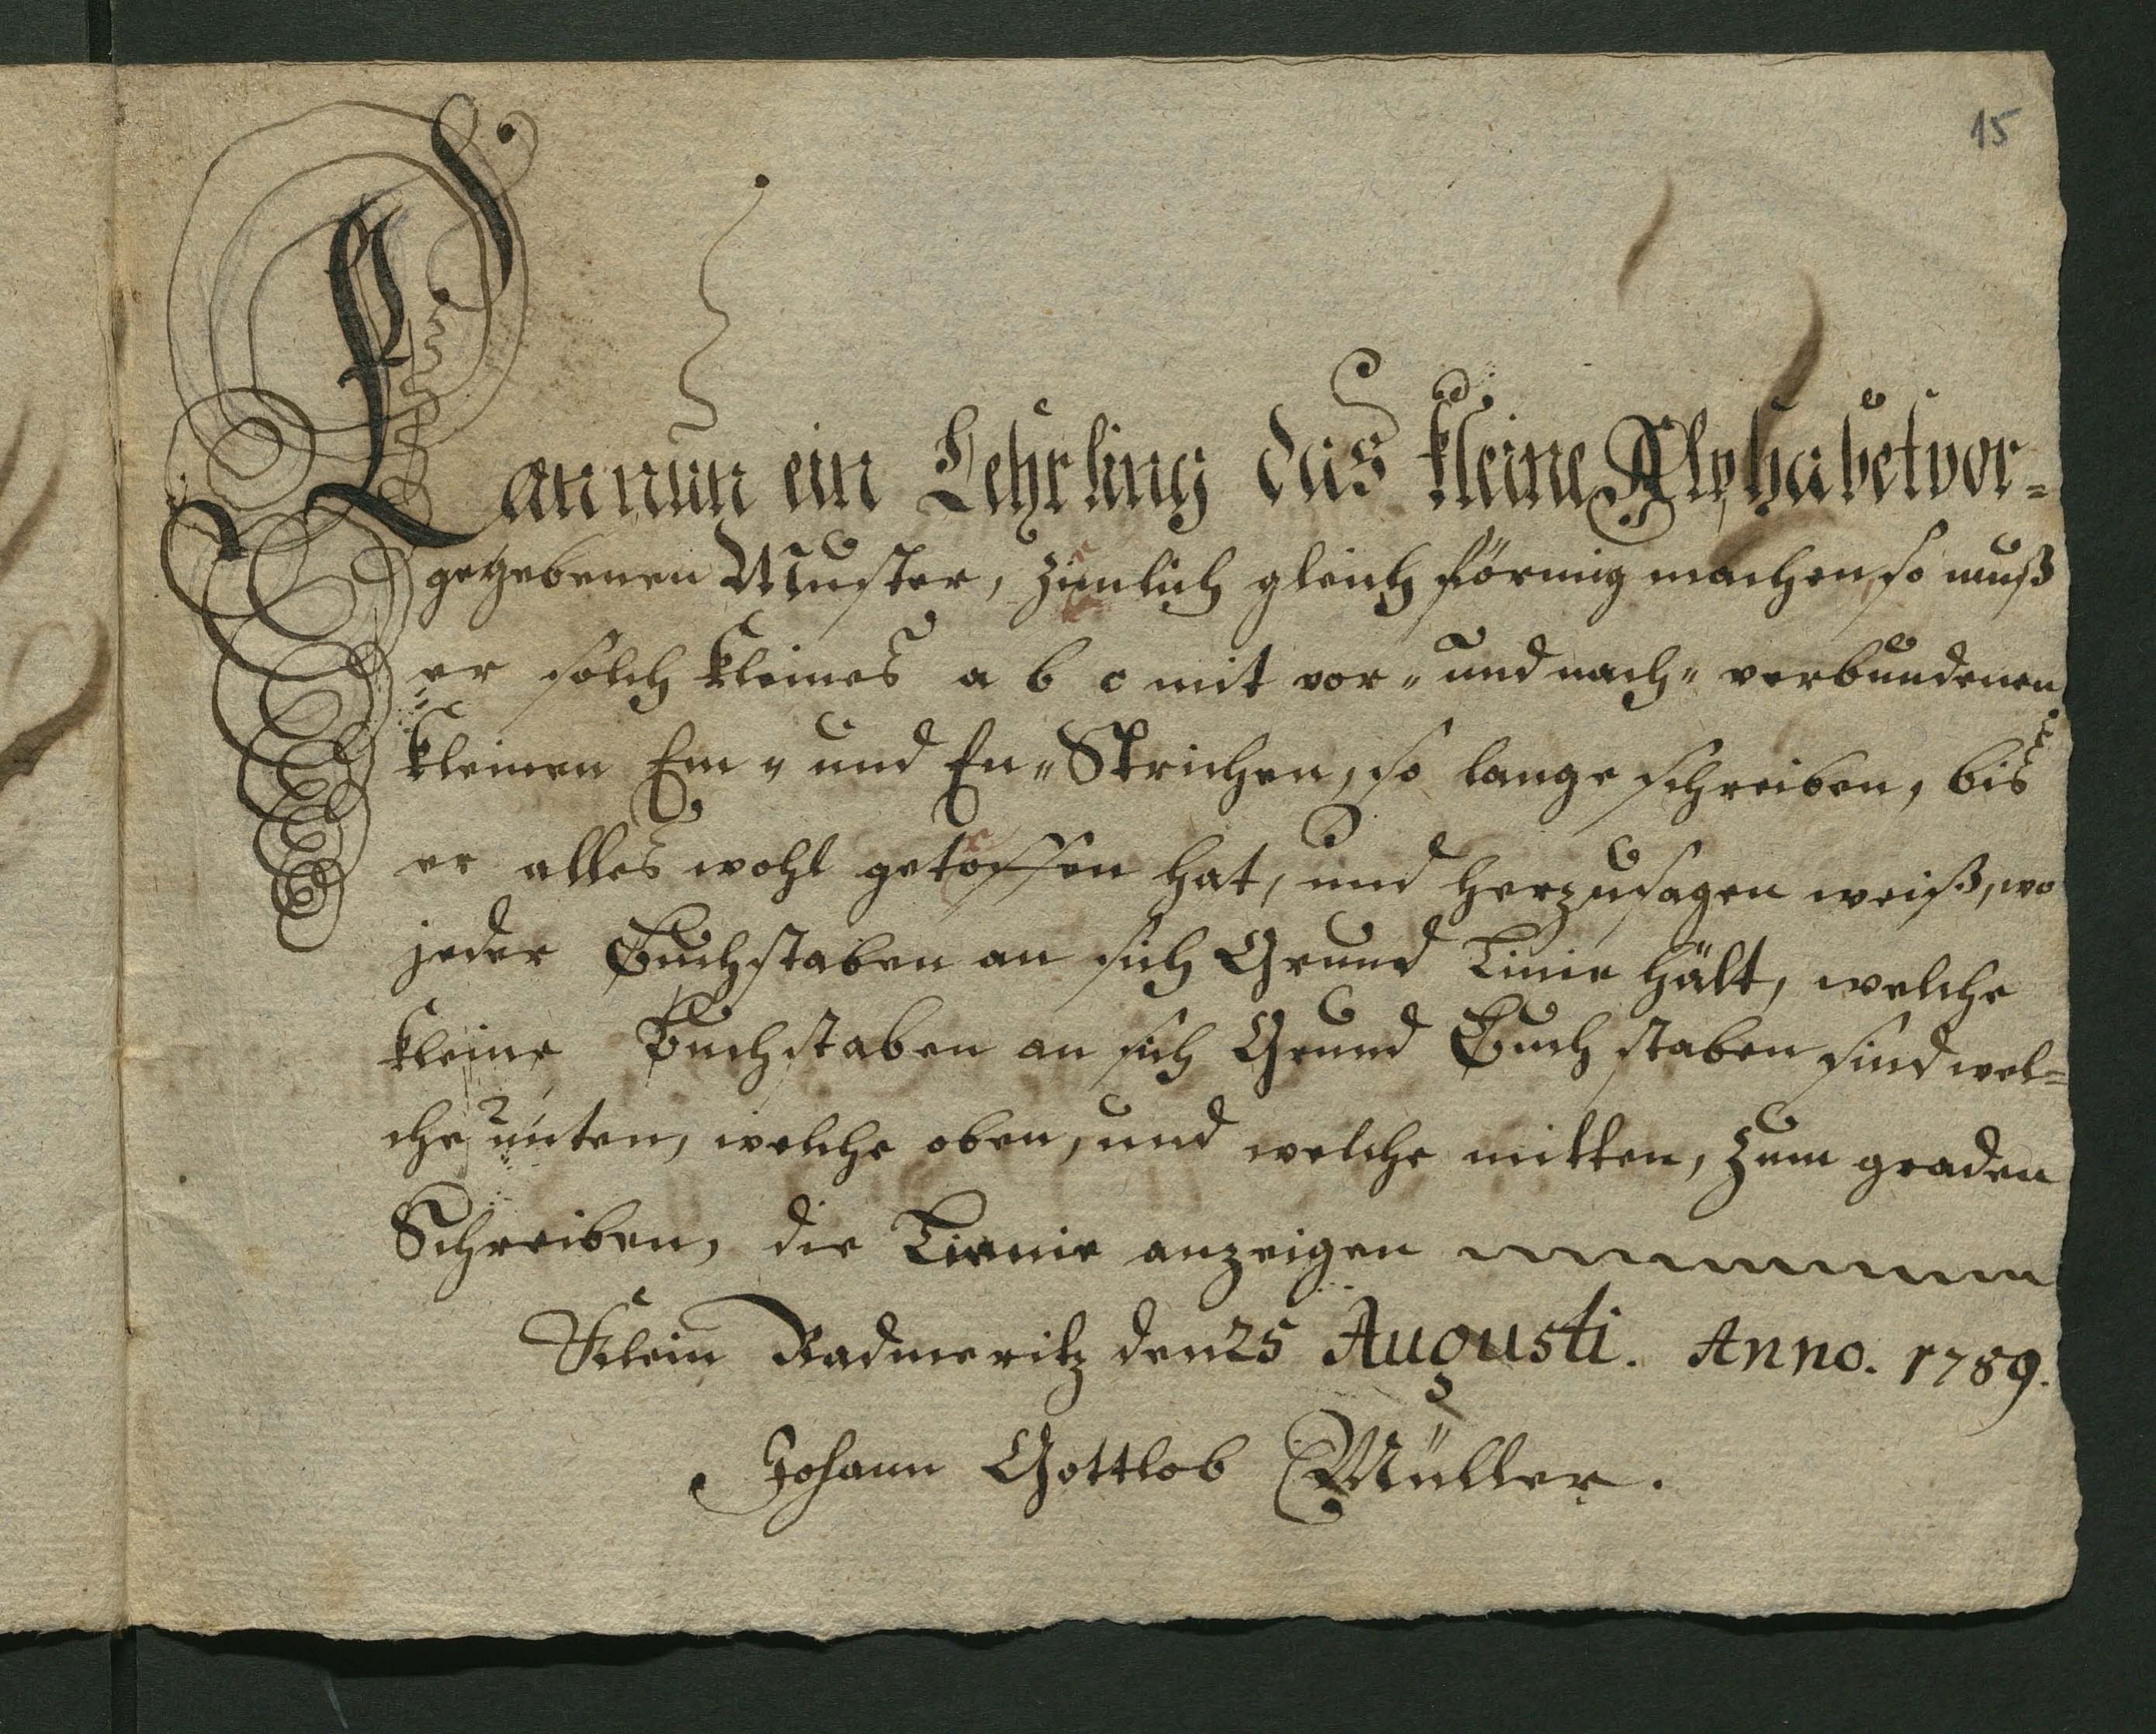 15
Kan nun ein Lehrling das kleine Alphabet vor=
gegebenen Muster, zimlich gleich förmig machen, so muß
er solch kleines a b c mit vor- und nach- verbundenen
kleinen Em- und En- Strichen, so lange schreiben, bis
er alles wohl getroffen hat, und herzusagen weiß, wo
jeder Buchstaben an sich Grund Linie hält, welche
kleine Buchstaben an sich Grund Buch staben sind wel=
che unten, welche oben, und welche mitten, zum graden
Schreiben, die Linnie anzeigen
Klein Radmeritz den 25 Augusti. Anno. 1789.
Johann Gottlob Müller.